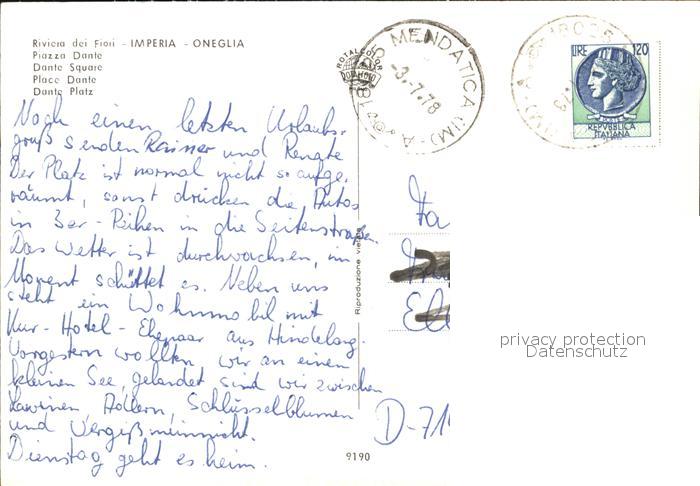 Riviera dei Fiori - IMPERIA - ONEGLIA
Piazza Dante
Dante Square
Place Dante
Dante Platz
Noch einen letzten Urlaubs-
gruß senden Rainer und Renate
Der Platz ist normal nicht so aufge-
räumt, sonst drücken die Autos
in 3er-Reihen in die Seitenstraßen.
Das Wetter ist durchwachsen, im
Moment schüttet es. Neben uns
steht ein Wohnmobil mit
Kur-Hotel-Ehepaar aus Hindelang.
Vorgestern wollten wir an einen
kleinen See, gelandet sind wir zwischen
Lawinen, Adlern, Schlüsselblumen
und Vergißmeinnicht.
Dienstag geht es heim.
ROTALCOLOR
MENDATICA (IM)
-3.-7.78
LIRE 120
REPVBBLICA
ITALIANA
Fa
D-71
9190
privacy protection
Datenschutz